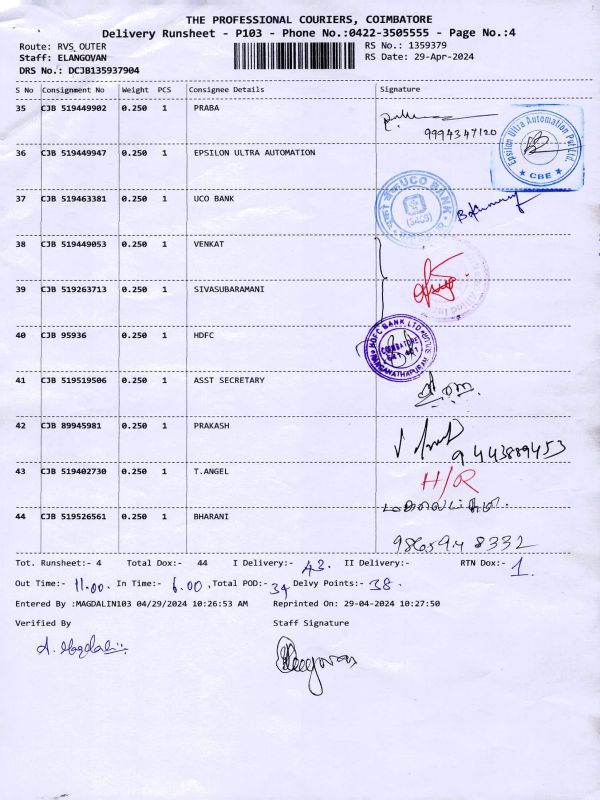 THE PROFESSIONAL COURIERS, COIMBATORE
Delivery Runsheet - P103 - Phone No.:0422-3505555 - Page No.:4
Route: RVS OUTER RS No.: 1359379
Staff: ELANGOVAN RS Date: 29-Apr-2024
DRS No.: DCJB135937904
S No Consignment No Weight PCS Consignee Details Signature
35 CJB 519449902 0.250 1 PRABA
9994347120
Epsilon Ultra Automation Pvt Ltd. ★ CBE ★
36 CJB 519449947 0.250 1 EPSILON ULTRA AUTOMATION
37 CJB 519463381 0.250 1 UCO BANK
UCO BANK
38 CJB 519449053 0.250 1 VENKAT
39 CJB 519263713 0.250 1 SIVASUBARAMANI
40 CJB 95936 0.250 1 HDFC
HDFC BANK LTD
COIMBATORE
41 CJB 519519506 0.250 1 ASST SECRETARY
42 CJB 89945981 0.250 1 PRAKASH
9443889453
43 CJB 519402730 0.250 1 T.ANGEL H/R
44 CJB 519526561 0.250 1 BHARANI
986594 8332
Tot. Runsheet:- 4 Total Dox:- 44 I Delivery:- 43. II Delivery:- RTN Dox:- 1.
Out Time:- 11.00. In Time:- 6.00. Total POD:- 34 Delvy Points:- 38.
Entered By :MAGDALIN103 04/29/2024 10:26:53 AM Reprinted On: 29-04-2024 10:27:50
Verified By Staff Signature
A. Magdalin
Elangovan